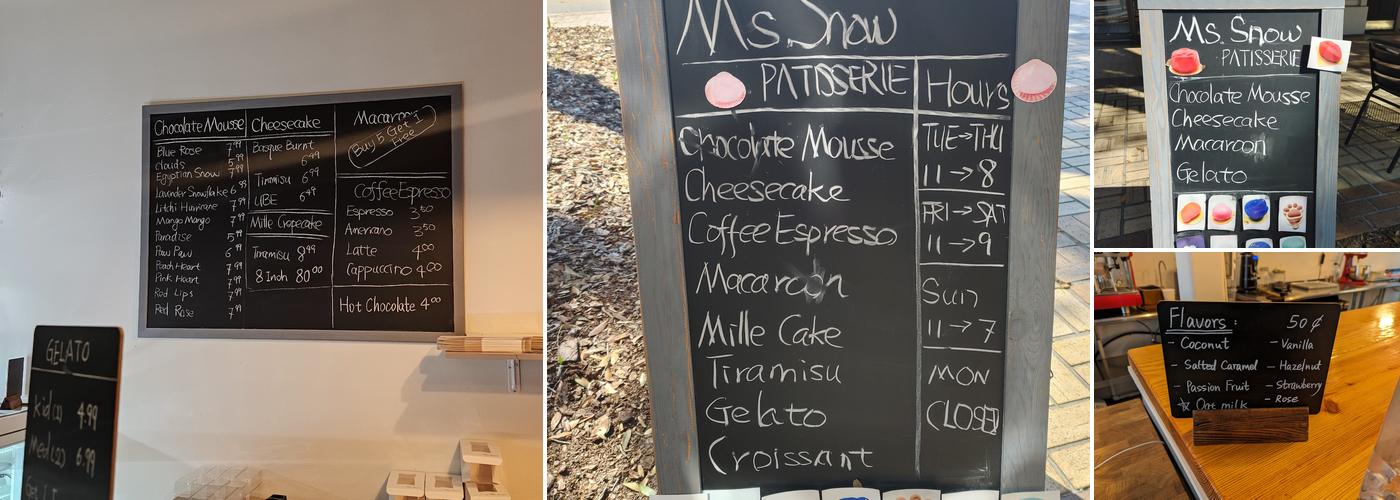 Chocolate Mousse
Blue Rose 7.99
Clouds 5.99
Egyptian Snow 7.99
Lavender Snowflake 6.99
Litchi Hurricane 7.99
Mango Mango 7.99
Paradise 5.99
Paw Paw 6.99
Peach Heart 7.99
Pink Heart 7.99
Red Lips 7.99
Red Rose 7.99
Cheesecake
Basque Burnt
6.99
Tiramisu 6.99
UBE 6.99
Mille Crepecake
Tiramisu 8.99
8 Inch 80.00
Macaron
Buy 5 Get 1
Free
Coffee Espresso
Espresso 3.50
Americano 3.50
Latte 4.00
Cappuccino 4.00
Hot Chocolate 4.00
GELATO
4.99
6.99
Ms. Snow
PATISSERIE
Hours
Chocolate Mousse
Cheesecake
Coffee Espresso
Macaroon
Mille Cake
Tiramisu
Gelato
Croissant
TUE→THU
11→8
FRI→SAT
11→9
Sun
11→7
MON
CLOSED
Ms. Snow
PATISSERIE
Chocolate Mousse
Cheesecake
Macaroon
Gelato
Flavors: 50¢
- Coconut
- Salted Caramel
- Passion Fruit
☆ Oat milk
- Vanilla
- Hazelnut
- Strawberry
- Rose